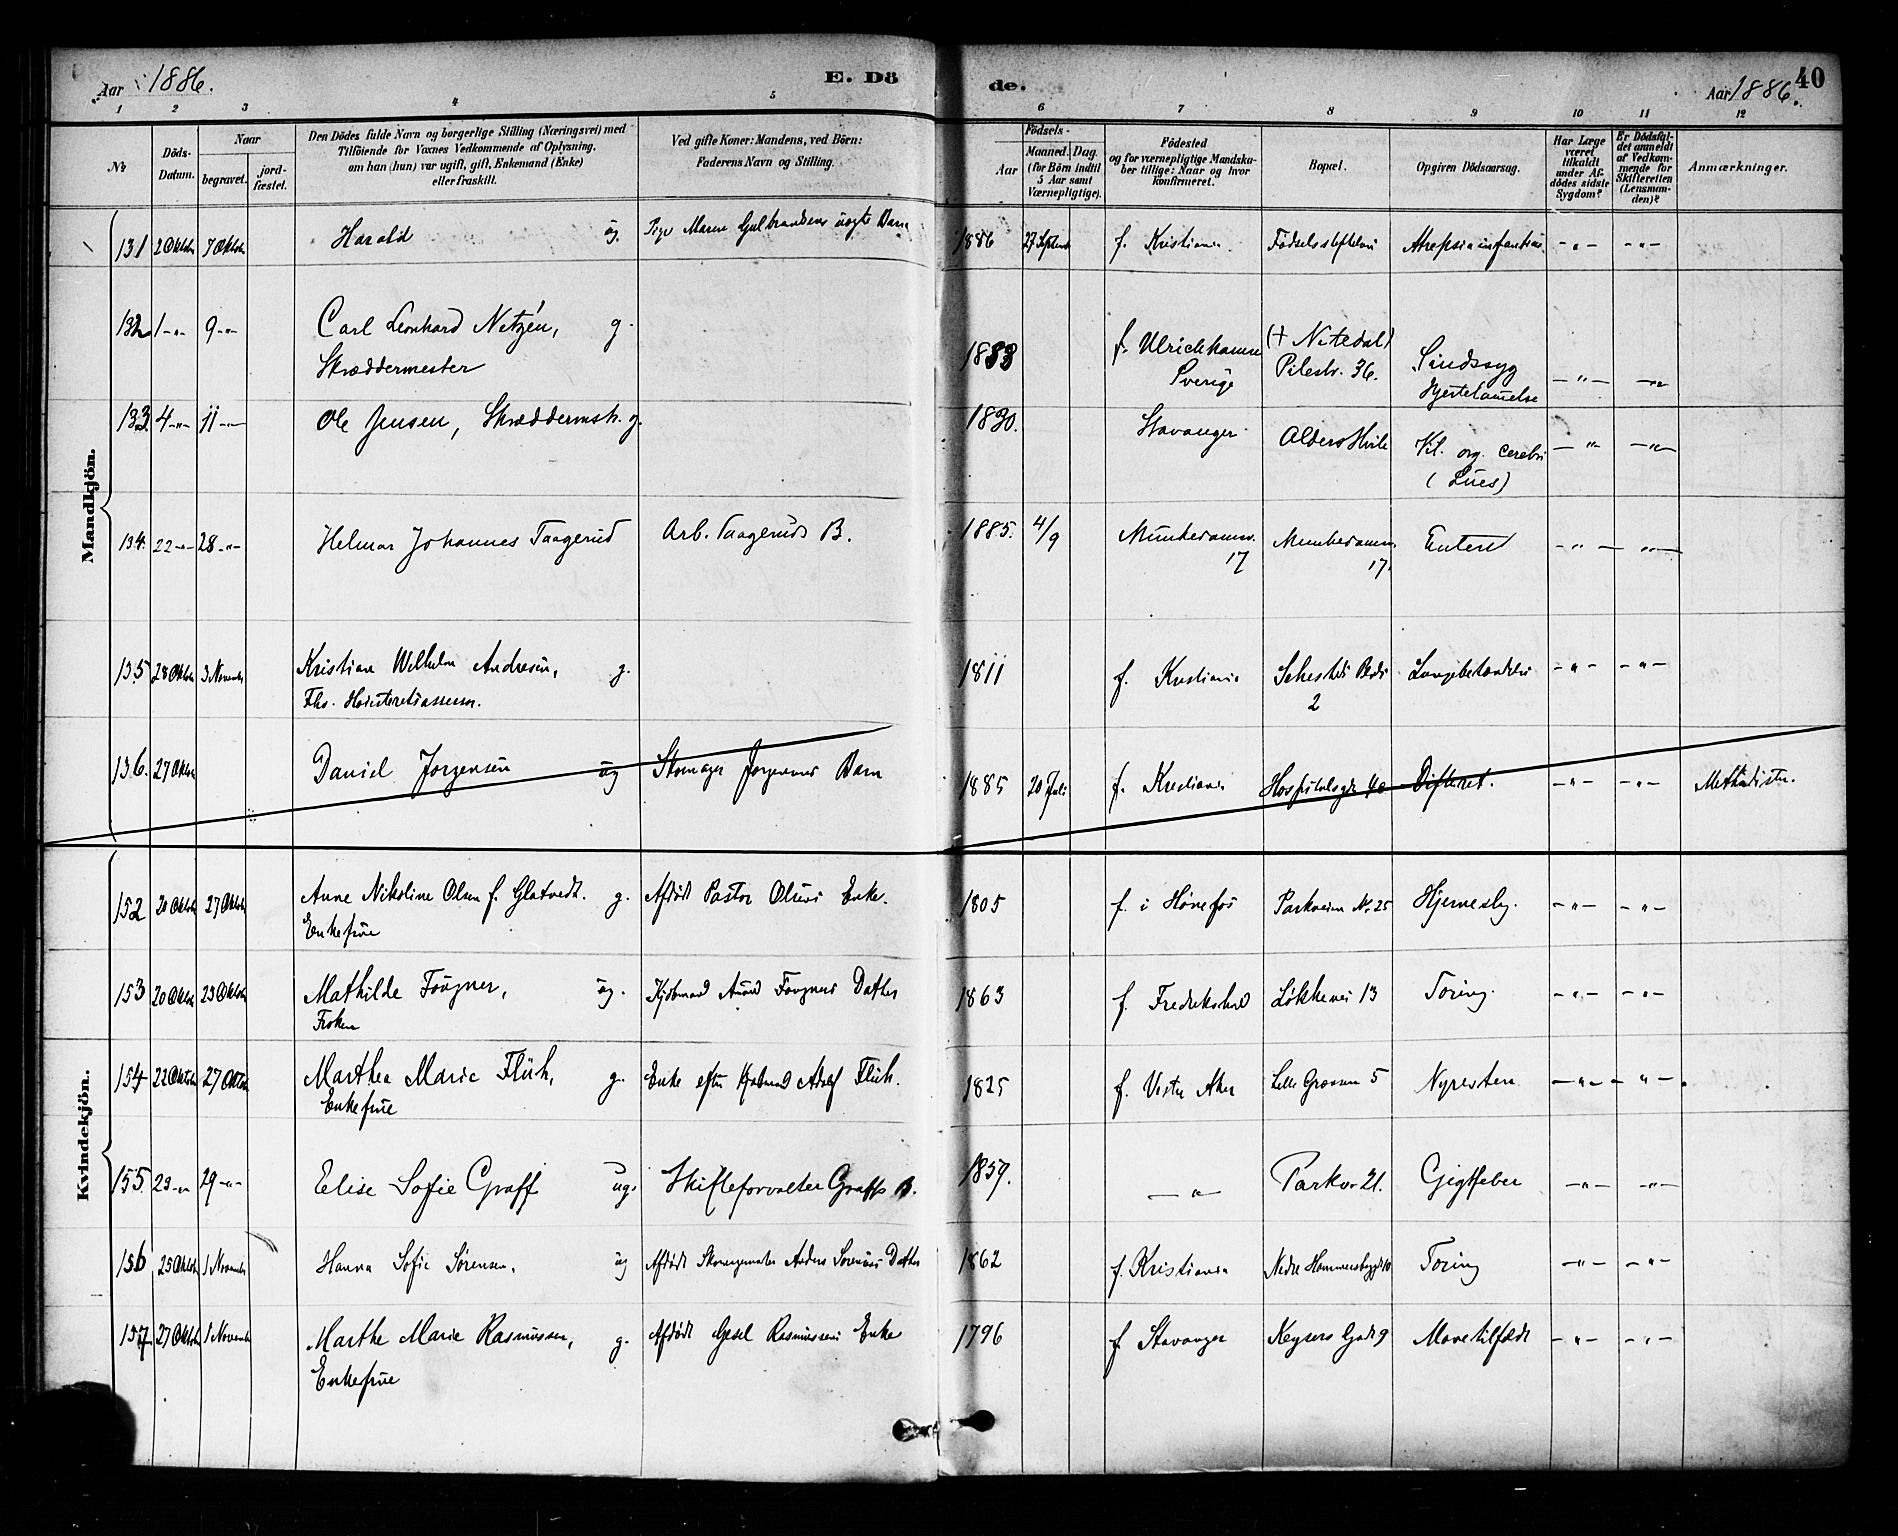 Aar 1886.
E. Dö
de.
Aar 1886.
40
1 2 3 4 5 6 7 8 9 10 11 12
No
Döds-Datum.
Naar
begravet.
jord-fæstet.
Den Dödes fulde Navn og borgerlige Stilling (Næringsvei) med
Tilföiende for Voxnes Vedkommende af Oplysning,
om han (hun) var ugift, gift, Enkemand (Enke)
eller fraskilt.
Ved gifte Koner: Mandens, ved Börn:
Faderens Navn og Stilling.
Födsels-
Aar
Maaned. Dag.
(for Börn indtil
5 Aar samt
Værnepligtige).
Födested
og for værnepligtige Mandska-
ber tillige: Naar og hvor
konfirmeret.
Bopæl.
Opgiven Dödsaarsag.
Har Læge
været
tilkaldt
under Af-
dödes sidste
Sygdom?
Er Dödsfal-
det anmeldt
af Vedkom-
mende for
Skifteretten
(Lensman-
den)?
Anmærkninger.
Mandkjön.
131 2 Oktob 7 Oktob Harald ug. Pige Maren Gulbrandsens uægte Barn 1886 27 Septemb f. Kristiania Fødselsstiftelsen -"- -"-
132 1-"- 9-"- Carl Leonhard Netzén, g.
Skræddermester
1883 f. Ulrichhamn
Sverige
(+ Nitedal)
Pilestr. 36.
Sindssyg
Hjertelamelse
-"- -"-
133. 4-"- 11-"- Ole Jensen, Skræddermstr. g. 1830. Stavanger Alders Hvile Vit. org. cerebri
(Lues)
-"- -"-
134. 22-"- 28-"- Helmar Johannes Taagerud Arb. Taageruds B. 1885. 4/9 Munkedamsv.
17
Munkedamsv.
17.
Enterit -"- -"-
135 28 Oktob 3 Novemb Kristian Wilhelm Andresen, g.
Fhv. Høiesteretsassessor.
1811 f. Kristiania Sehesteds Plads
2
Lungebetændelse -"- -"-
136. 27 Oktob Daniel Jorgensen ug Skomager Jorgensens Barn 1885 20 Juli f. Kristiania Hospitalsgd 40 Difterit. -"- -"- Methodister.
Kvindekjön.
152 20 Oktob 27 Oktob Anne Nikoline Olsen f. Glatvedt. g.
Enkefrue
Afdøde Pastor Olsens Enke. 1805 f. i Hønefos Parkveien No 25 Hjernesyg. -"- -"-
153 20 Oktob 23 Oktob Mathilde Fougner, ug.
Frøken
Kjøbmand Fougners Datter 1863 f. Fredrikshald Løkkevei 13 Tæring. -"- -"-
154 22 Oktob 27 Oktob Marthea Marie Flüh, g.
Enkefrue
Enke efter Kjøbmand Adolf Flüh. 1825 f. Vestre Aker Lille Grænsen 5 Nyresten -"- -"-
155. 23-"- 29-"- Elise Sofie Graff ug. Skifteforvalter Graffs B. 1859. -"- Parkv 21. Gigtfeber -"- -"-
156 25 Oktob 1 Novemb Hanna Sofie Sørensen, ug Afdøde Skomagermester Anders Sørensens Datter 1862 f. Kristiania Nedre Hammersbggd 10 Tæring -"- -"-
157 27 Oktob 1 Novemb Marthe Marie Rasmussen, g.
Enkefrue
Afdøde Rasmussens Enke 1796 f Stavanger Keysers Gade 9 Mavetilfælde -"- -"-